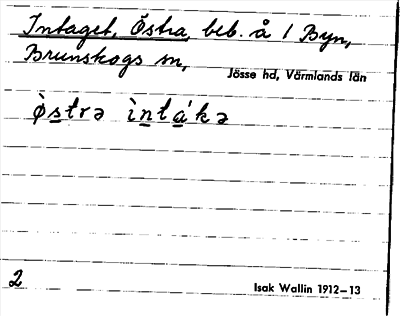 Intaget, Östra, beb. å 1 Byn,
Brunskogs sn,
Jösse hd, Värmlands län
ø̀stra ìntákə
2
Isak Wallin 1912–13